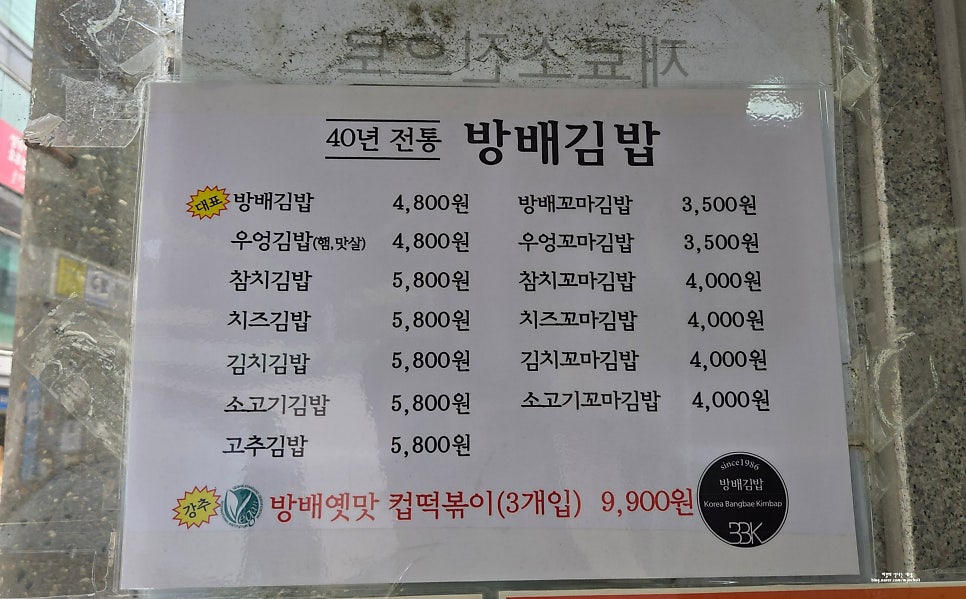 재료소진으로
40년 전통 방배김밥
대표 방배김밥 4,800원 방배꼬마김밥 3,500원
우엉김밥(햄,맛살) 4,800원 우엉꼬마김밥 3,500원
참치김밥 5,800원 참치꼬마김밥 4,000원
치즈김밥 5,800원 치즈꼬마김밥 4,000원
김치김밥 5,800원 김치꼬마김밥 4,000원
소고기김밥 5,800원 소고기꼬마김밥 4,000원
고추김밥 5,800원
강추 방배옛맛 컵떡볶이(3개입) 9,900원
since1986
방배김밥
Korea Bangbae Kimbap
BBK